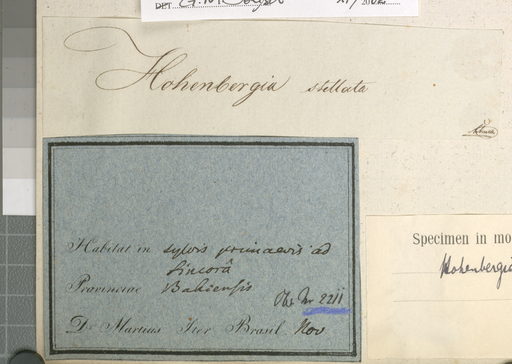 DET
Hohenbergia stellata
Habitat in sylvis primaevis ad
Sincorâ
Provinciae Bahiensis
Obs. Nr 2211
Dr Martius Iter Brasil. Nov
Specimen in mo
Hohenbergia